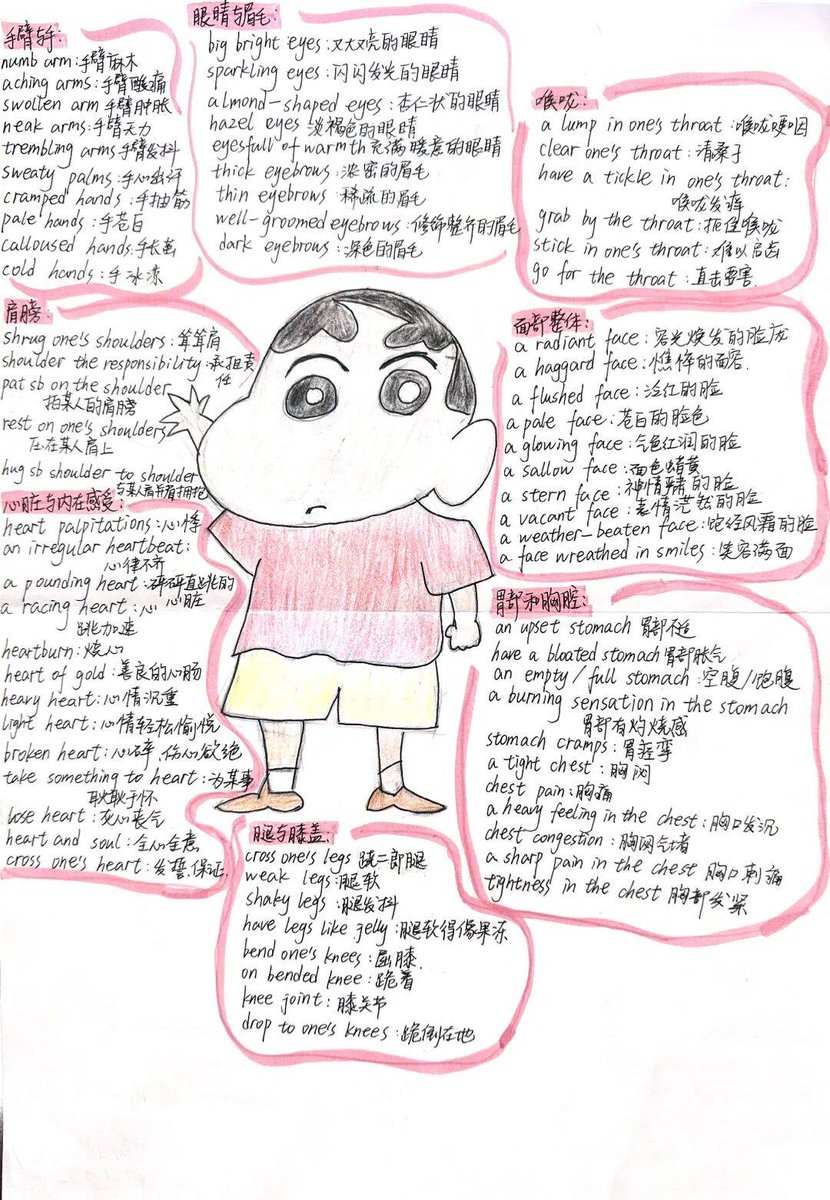 手臂与手:
numb arm:手臂麻木
aching arms:手臂酸痛
swollen arm 手臂肿胀
neak arms:手臂无力
trembling arms 手臂发抖
sweaty palms:手心出汗
cramped hands:手抽筋
pale hands:手苍白
calloused hands:手长茧
cold hands:手冰凉
眼睛与眉毛:
big bright eyes:又大又亮的眼睛
sparkling eyes:闪闪发光的眼睛
almond-shaped eyes:杏仁状的眼睛
hazel eyes 淡褐色的眼睛
eyesfull of warmth 充满暖意的眼睛
thick eyebrows:浓密的眉毛
thin eyebrows:稀疏的眉毛
well-groomed eyebrows:修饰整齐的眉毛
dark eyebrows:深色的眉毛
喉咙:
a lump in one's throat:喉咙哽咽
clear one's throat:清嗓子
have a tickle in one's throat:
喉咙发痒
grab by the throat:扼住喉咙
stick in one's throat:难以启齿
go for the throat:直击要害
肩膀:
shrug one's shoulders:耸耸肩
shoulder the responsibility:承担责
任
pat sb on the shoulder
拍某人的肩膀
rest on one's shoulders
压在某人肩上
hug sb shoulder to shoulder
与某人肩并肩拥抱
面部整体:
a radiant face:容光焕发的脸庞
a haggard face:憔悴的面容.
a flushed face:泛红的脸
a pale face:苍白的脸色
a glowing face:气色红润的脸
a sallow face:面色蜡黄
a stern face:神情严肃的脸
a vacant face:表情茫然的脸
a weather-beaten face:饱经风霜的脸
a face wreathed in smiles:笑容满面
心脏与内在感受:
heart palpitations:心悸
an irregular heartbeat:
心律不齐
a pounding heart:砰砰直跳的
心脏
a racing heart:心
跳加速
heartburn:烧心
heart of gold:善良的心肠
heavy heart:心情沉重
light heart:心情轻松愉悦
broken heart:心碎,伤心欲绝
take something to heart:为某事
耿耿于怀
lose heart:灰心丧气
heart and soul:全心全意
cross one's heart:发誓,保证.
胃部和胸腔:
an upset stomach 胃部不适
have a bloated stomach 胃部胀气
an empty/full stomach:空腹/饱腹
a burning sensation in the stomach
胃部有灼烧感
stomach cramps:胃痉挛
a tight chest:胸闷
chest pain:胸痛
a heavy feeling in the chest:胸口发沉
chest congestion:胸闷气堵
a sharp pain in the chest 胸口刺痛
tightness in the chest 胸部发紧
腿与膝盖:
cross one's legs 跷二郎腿
weak legs:腿软
shaky legs:腿发抖
have legs like jelly:腿软得像果冻
bend one's knees:屈膝.
on bended knee:跪着
knee joint:膝关节
drop to one's knees:跪倒在地